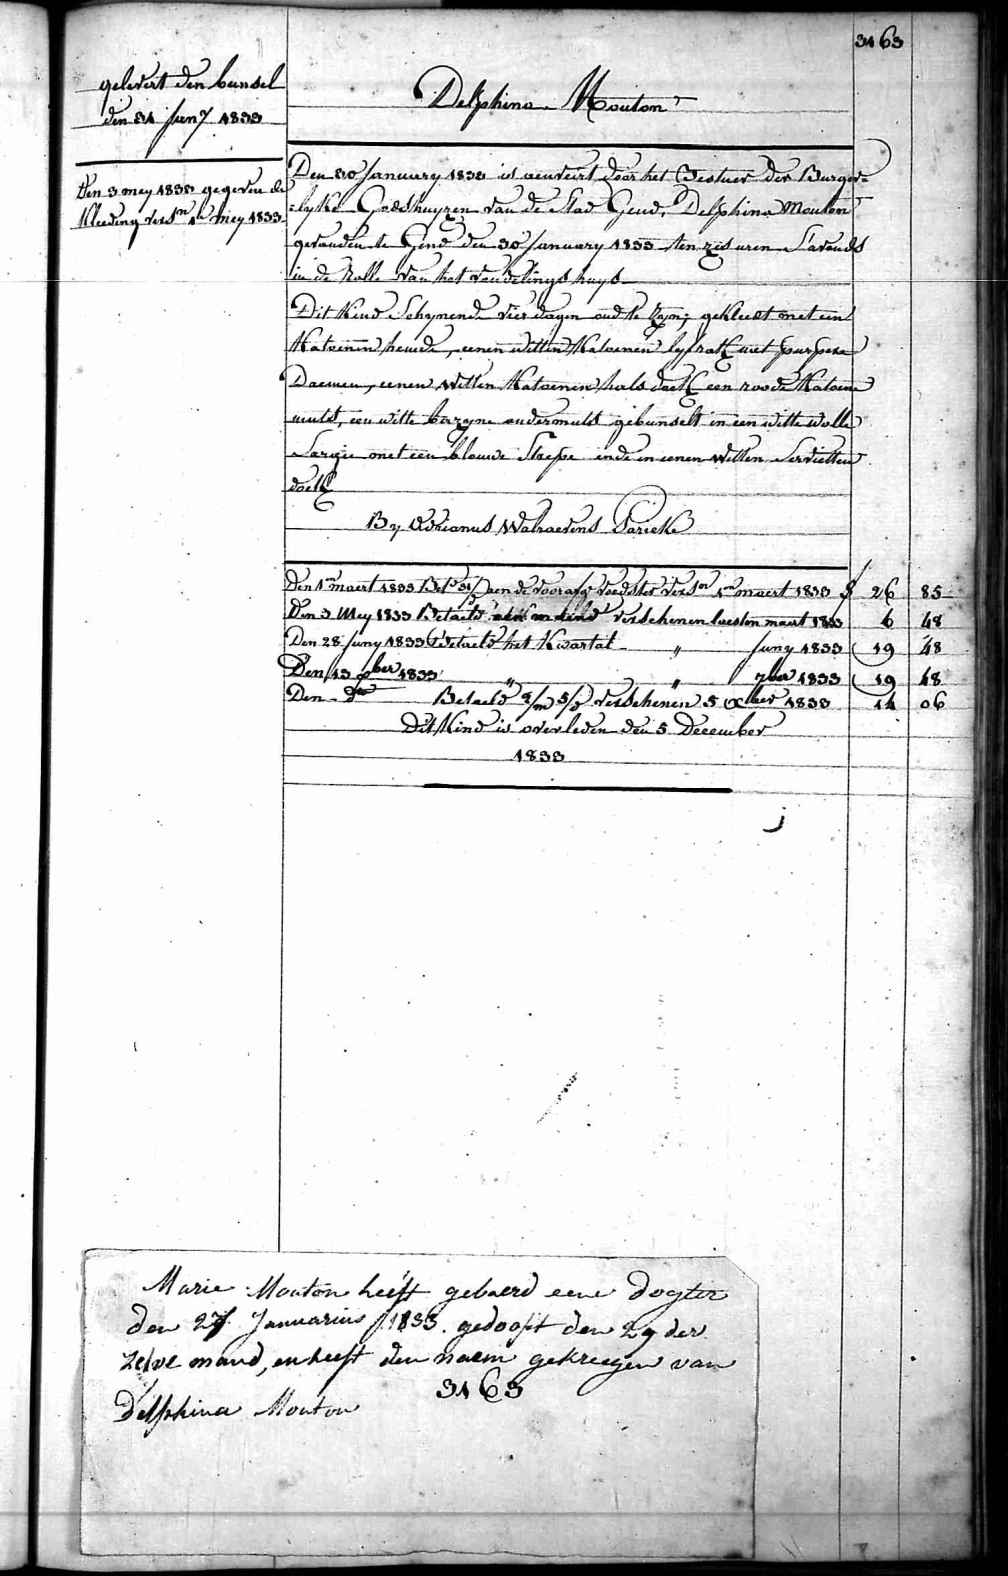 3163
gelevert den bunsel
den 31 Jany 1833
Delphina Mouton
Den 3 mey 1833 gegeven de
Kleeding vers.n 1.n mey 1833
Den 30 January 1833 is aenveirt door het Bestuer der Burger=
=lyke Godshuyzen van de Stad Gend, Delphina Mouton
gevonden te Gend den 30 January 1833 ten zes uren S'avonds
in de Rolle van het vondelings huys
Dit Kind Schynende vier dagen oud te zyn; gekleet met een
Katoenen hemde, eenen witten Katoenen lyfrok met purpere
, eenen witten Katoenen hals doek een roode Katoene
muts, een witte bazyne ondermuts gebunselt in een witte wolle
Sargie met een blauwe Strepe ende in eenen witten Servietten
doek
By Adrianus Walraevens
Den 1.en maert 1833 Bet.d 31/ aen de voorafg voedster vers.n 1.en maert 1833 26 85
Den 3 Mey 1833 Betaeld een maend verschenen lesten maert 1833 6 48
Den 28 Juny 1833 Betaeld het Kwartal " Juny 1833 19 48
Den 13 8ber 1833 " " 7ber 1833 19 48
Den d.o Betaeld 2/m 5/d verschenen 5 Xber 1833 14 06
Dit Kind is overleden den 5 December
1833
Marie Mouton heeft gebaerd eene dogter
den 27 Januarius 1833. gedoopt den 29 der
zelve maand, en heeft den naem gekreegen van
3163
Delphina Mouton